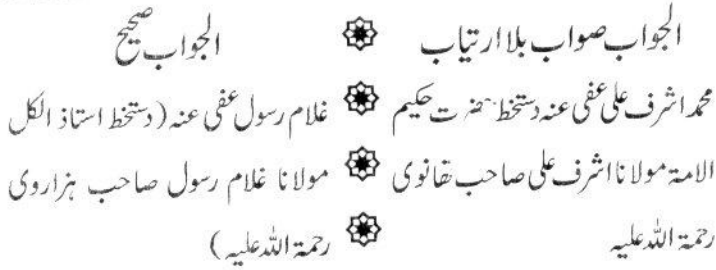 الجواب صواب بلا ارتیاب ۞ الجواب صحیح
محمد اشرف علی عفی عنہ دستخط حضرت حکیم ۞ غلام رسول عفی عنہ (دستخط استاذ الکل
الامۃ مولانا اشرف علی صاحب تھانوی ۞ مولانا غلام رسول صاحب ہزاروی
رحمۃ اللہ علیہ ۞ رحمۃ اللہ علیہ)